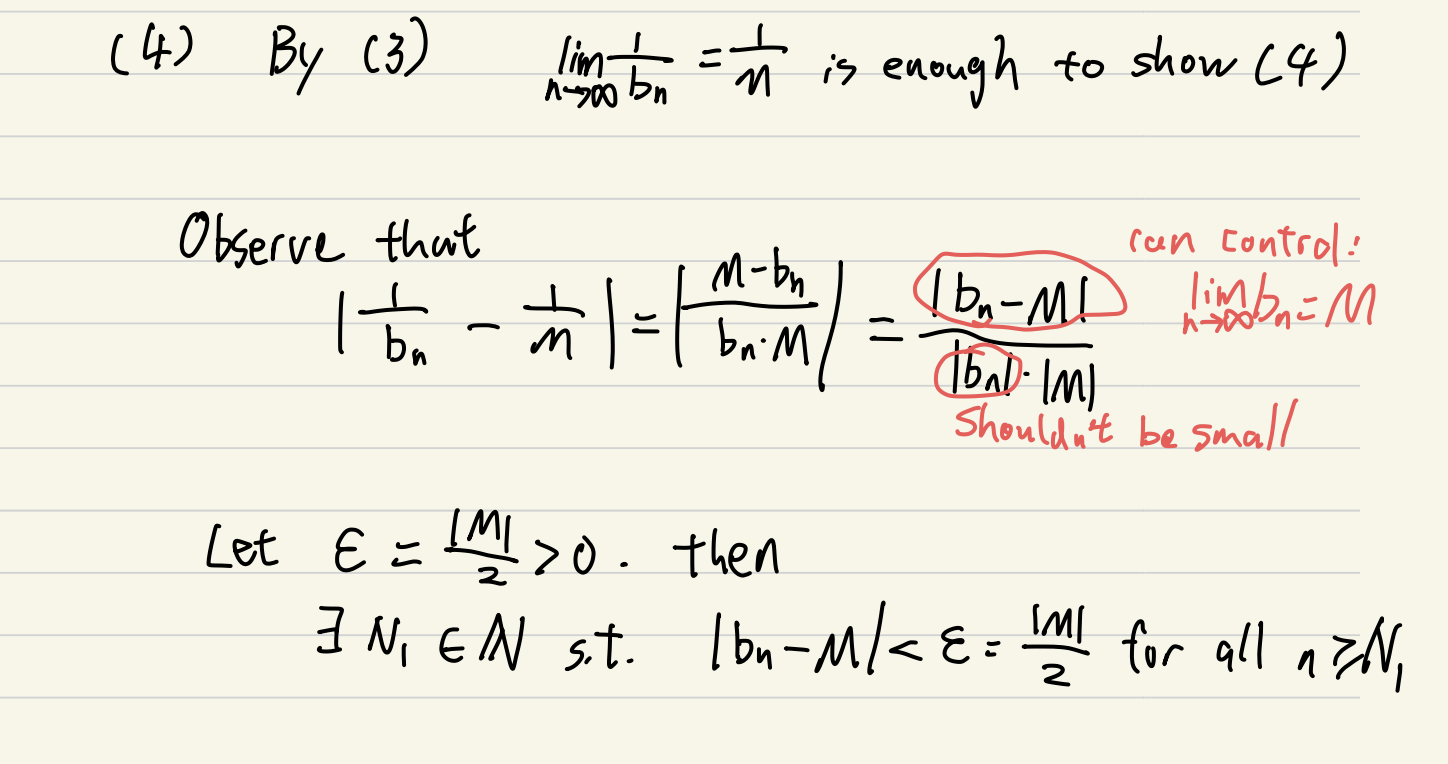 (4) By (3) lim n→∞ 1/bn = 1/M is enough to show (4)
Observe that
can control:
|1/bn − 1/M| = |M−bn / bn·M| = |bn−M| / |bn|·|M|
lim n→∞ bn = M
shouldn't be small
Let ε = |M|/2 > 0. then
∃ N₁ ∈ ℕ s.t. |bn−M| < ε = |M|/2 for all n ≥ N₁